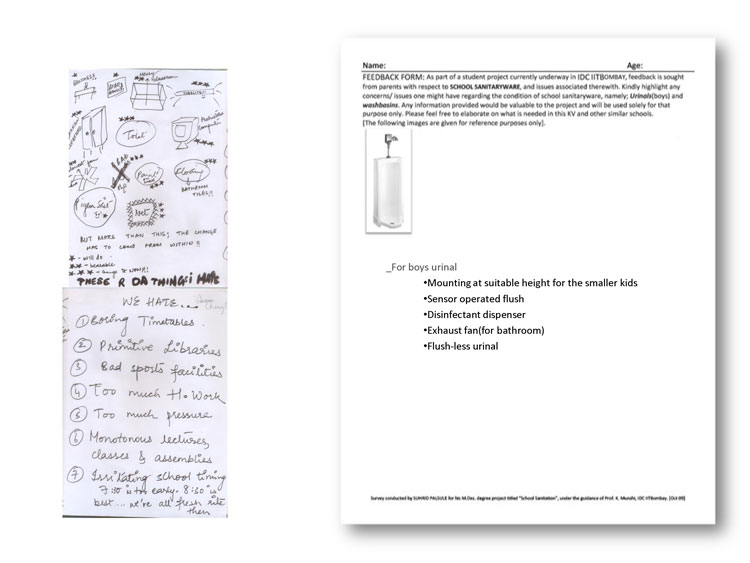 BUT MORE THAN THIS; THE CHANGE
HAS TO COME FROM WITHIN!!
* - will do
** - bearable
THESE R DA THINGS i HATE
WE HATE...
① Boring Timetables.
② Primitive Libraries
③ Bad sports facilities
④ Too much H. Work
⑤ Too much pressure
⑥ Monotonous lectures,
classes & assemblies
⑦ Irritating school timing
7:30 is too early. 8:30 is
best... we're all fresh rite
then
Toilet
Paint
BATHROOM
TILES!!
Name: Age:
FEEDBACK FORM: As part of a student project currently underway in IDC IITBOMBAY, feedback is sought
from parents with respect to SCHOOL SANITARYWARE, and issues associated therewith. Kindly highlight any
concerns/ issues one might have regarding the condition of school sanitaryware, namely; Urinals(boys) and
washbasins. Any information provided would be valuable to the project and will be used solely for that
purpose only. Please feel free to elaborate on what is needed in this KV and other similar schools.
[The following images are given for reference purposes only].
_For boys urinal
•Mounting at suitable height for the smaller kids
•Sensor operated flush
•Disinfectant dispenser
•Exhaust fan(for bathroom)
•Flush-less urinal
Survey conducted by SUHRID PALSULE for his M.Des. degree project titled "School Sanitation", under the guidance of Prof. K. Munshi, IDC IITBombay. [Oct 09]